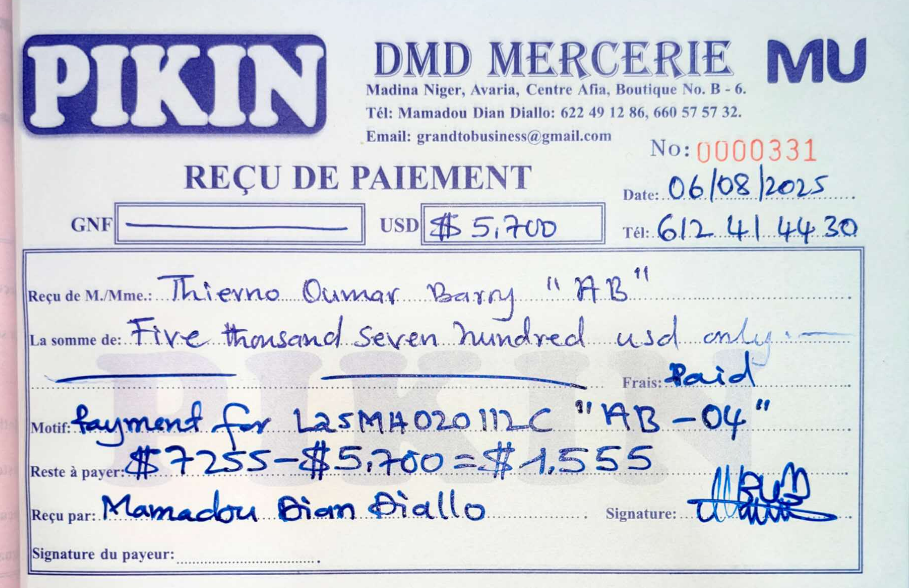 PIKIN
DMD MERCERIE MU
Madina Niger, Avaria, Centre Afia, Boutique No. B - 6.
Tél: Mamadou Dian Diallo: 622 49 12 86, 660 57 57 32.
Email: grandtobusiness@gmail.com
No: 0000331
REÇU DE PAIEMENT
Date: 06/08/2025
GNF USD $ 5,700 Tél: 612 41 44 30
Reçu de M./Mme.: Thierno Oumar Barry "AB"
La somme de: Five thousand seven hundred usd only.
Frais: Paid
Motif: Payment for L25MH020112C "AB-04"
Reste à payer: $7255-$5,700=$1,555
Reçu par: Mamadou Dian Diallo Signature:
Signature du payeur: